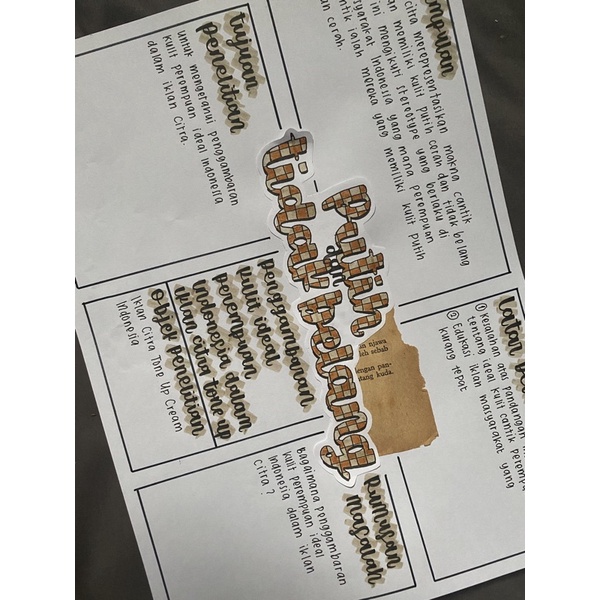 mpulan
citra merepresentasikan makna cantik
an memiliki kulit putih cerah dan tidak belang
ini mengikuti stereotype yang berlaku di
syarakat Indonesia yang mana perempuan
ntik ialah mereka yang memiliki kulit putih
n cerah.
Latar Be
① Kesalahan atas pandangan m
tentang ideal kulit cantik perempu
② Edukasi iklan masyarakat yang
kurang tepat
putih
dan
tidak belang
n njawa
leh sebab
lengan pan-
tang kuda.
Tujuan
Penelitian
untuk mengetahui penggambaran
kulit perempuan ideal Indonesia
dalam iklan Citra.
penggambaran
kulit ideal
perempuan
Indonesia dalam
iklan citra tone up
Objek penelitian
Iklan Citra Tone Up Cream
Indonesia
Rumusan
Masalah
Bagaimana penggambaran
kulit perempuan ideal
Indonesia dalam iklan
Citra ?